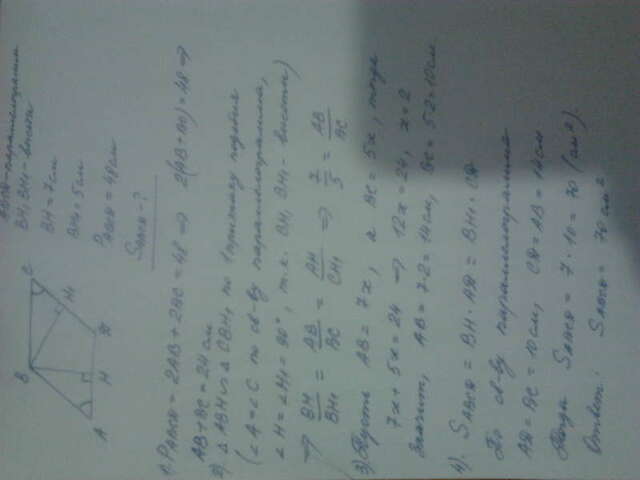 ABCD-параллелограмм
BH, BH₁ - высоты
BH = 7 см
BH₁ = 5 см
P_ABCD = 48 см
S_ABCD - ?
B C
H₁
A H D
1) P_ABCD = 2AB + 2BC = 48 ⇒ 2(AB+BC) = 48 ⇒
AB + BC = 24 см
2) △ABH ∽ △CBH₁ по 1 признаку подобия
(∠A = ∠C по св-ву параллелограмма,
∠H = ∠H₁ = 90°, т.к. BH, BH₁ - высоты)
⇒ BH/BH₁ = AB/BC = AH/CH₁ ⇒ 7/5 = AB/BC
3) Пусть AB = 7x, а BC = 5x, тогда
7x + 5x = 24 ⇒ 12x = 24, x = 2
Значит, AB = 7·2 = 14 см, BC = 5·2 = 10 см.
4) S_ABCD = BH · AD = BH₁ · CD
По св-ву параллелограмма
AD = BC = 10 см, CD = AB = 14 см
Тогда S_ABCD = 7 · 10 = 70 (см²).
Ответ: S_ABCD = 70 см²